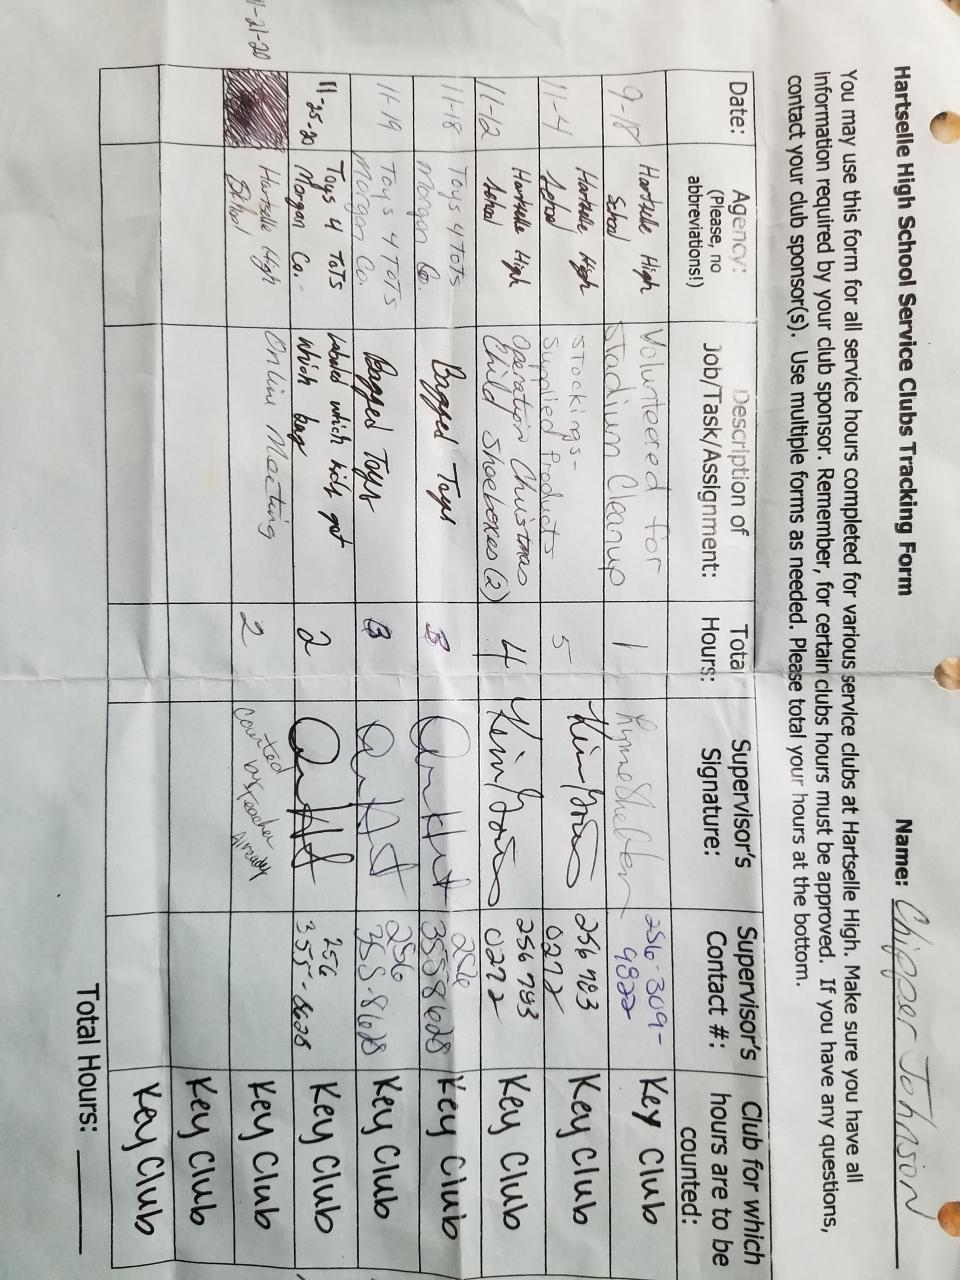 Hartselle High School Service Clubs Tracking Form
Name: Chipper Johnson
You may use this form for all service hours completed for various service clubs at Hartselle High. Make sure you have all
information required by your club sponsor. Remember, for certain clubs hours must be approved. If you have any questions,
contact your club sponsor(s). Use multiple forms as needed. Please total your hours at the bottom.
Date:
Agency:
(Please, no
abbreviations!)
Description of
Job/Task/Assignment:
Total
Hours:
Supervisor's
Signature:
Supervisor's
Contact #:
Club for which
hours are to be
counted:
9-18
Hartselle High
School
Volunteered for
Stadium Cleanup
1
256-309-
9822
Key Club
11-4
Hartselle High
School
Stockings-
Supplied Products
5
256 783
0272
Key Club
11-12
Hartselle High
School
Operation Christmas
Child Shoeboxes (2)
4
256 783
0272
Key Club
11-18
Toys 4 Tots
Morgan Co.
Bagged Toys
3
256
355 8628
Key Club
11-19
Toys 4 Tots
Morgan Co.
Bagged Toys
3
256
355-8628
Key Club
11-25-20
Toys 4 Tots
Morgan Co.
which kids got
which bag
2
256
355-8628
Key Club
11-21-20
Hartselle High
School
Online Meeting
2
Counted
by teacher
Already
Key Club
Key Club
Key Club
Total Hours: